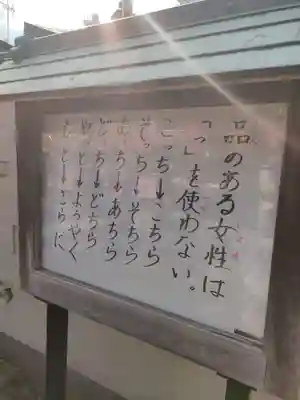 品のある女性は
「っ」を使わない。
こっち→こちら
そっち→そちら
あっち→あちら
どっち→どちら
やっと→ようやく
もっと→さらに